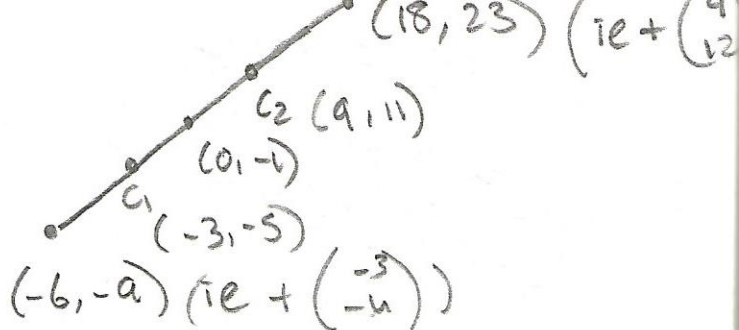 (18, 23) (ie + (9
12
C2 (9, 11)
(0, -1)
C1
(-3, -5)
(-6, -9) (ie + (-3
-4))